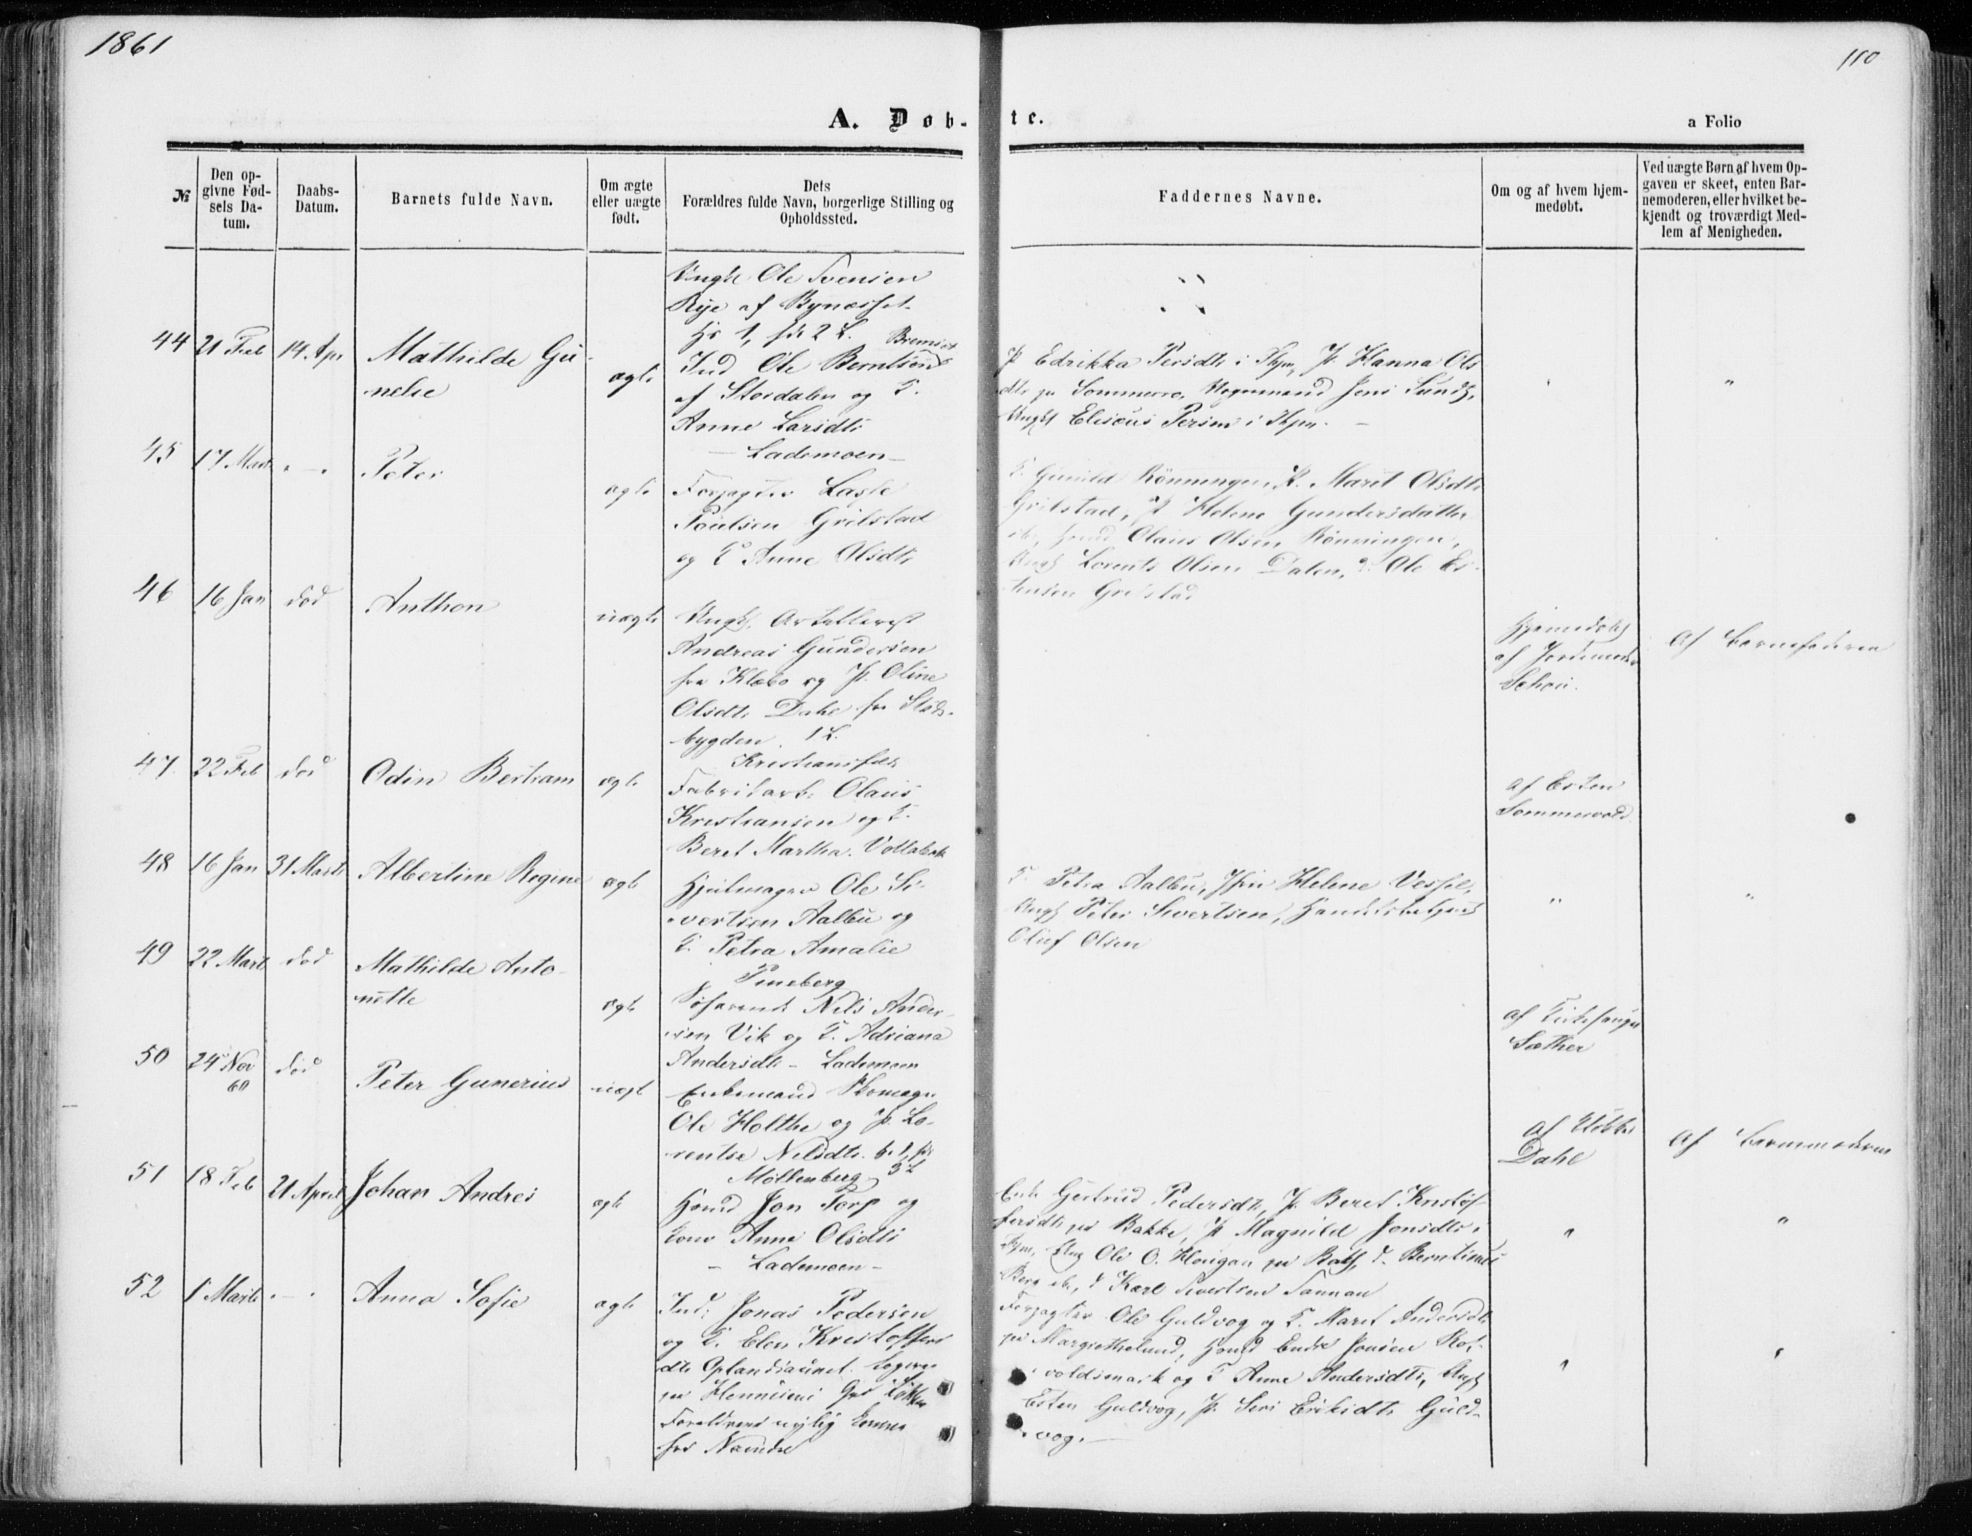 1861
110
A. Døb-
te.
a Folio
№
Den op-
givne Fød-
sels Da-
tum.
Daabs-
Datum.
Barnets fulde Navn.
Om ægte
eller uægte
født.
Dets
Forældres fulde Navn, borgerlige Stilling og
Opholdssted.
Faddernes Navne.
Om og af hvem hjem-
medøbt.
Ved uægte Børn af hvem Op-
gaven er skeet, enten Bar-
nemoderen, eller hvilket be-
kjendt og troværdigt Med-
lem af Menigheden.
Ungk Ole Svensen
Rye af Bynæsset
1, 2 L.
44 21 Feb 14 Apr Mathilde Gu-
nelie
ægte
Ind Ole Berntsen
af Stordalen og K.
Anne Larsdtr
P Edrikka Persdtr i Thjm, P Hanna Ols
dtr pr Sommerro, Jens Sund,
Ungk Eliseus Persen i Thjm. —
"
45 17 Mart " — " Peter
ægte
— Lademoen —
Lasse
Poulsen Grilstad
og K Anne Olsdtr
K Gunild Rönningen, K. Marit Olsdtr
Grilstad, P Helene Gundersdatter
ib, Olaus Olsen Rönningen,
Ungk Lorents Olsen Dalen, do Ole Es-
tensen Grilstad
46 16 Jan död Anthon
uægte
Ungk. Artillerist
Andreas Gundersen
fra Klæbo og P. Oline
Olsdtr Dahl fra Stads-
bygden. 1 L.
Hjemmedöbt
af Jordemoder
Schei.
Af Barnefaderen
47. 22 Feb död Odin Bertram ægte
Fabrikarb: Olaus
Kristiansen og K.
Beret Martha. Vollabak
af Esten
Sommervold
48 16 Jan 31 Marts Albertine Regine ægte
Hjulmager Ole Si-
vertsen Aalbu og
K. Petra Amalie
K. Petra Aalbu, Jfru Helene Vessel,
Ungk Peter Sivertsen, Handelsbetjent
Oluf Olsen
" "
49 22 Mart död Mathilde Anto-
nette
ægte
Pineberg
Söfarende Nils Ander-
sen Vik og K. Adriana
Andersdtr — Lademoen
af Kirkesanger
Sæther
50 24 Nov
60
död Peter Gunerius uægte
Enkemand Skomager
Ole Holthe og P. Lo-
rentse Nilsdtr.
af
Dahl
Af Barnemoderen
51 18 Feb 21 April Johan Andres ægte
Möllenberg
Hsmd Jon Torp og
Kone Anne Olsdtr
— Lademoen —
Enke Gertrud Pedersdtr, P. Beret Kristof-
fersdtr pr Bakke, P Magnild Jonsdtr i
Thjm, Ung Ole O. Haugan pr Bak, do Berntinus
Berg ib, do Karl Sivertsen Sannan
" "
52 1 Marts " — " Anna Sofie ægte
Ind: Jonas Pedersen
og K. Elen Kristoffers
dtr Oplandsaunet. Logerer
pr
Forældrene nylig komne
fra Namdal
Ole Guldvog og K. Maret Andersdtr
pr Margrethelund, Hsmd Endre Jonsen Rot-
voldsmark og K Anne Andersdtr, Ungk
Esten Guldvog, P. Seri Eriksdtr Guld-
vog. —
" "